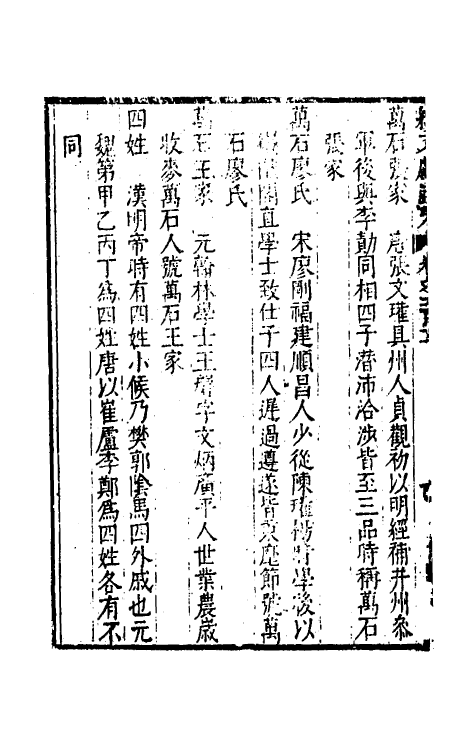 萬石張家　唐張文瓘貝州人貞觀初以明經補并州參
軍後與李勣同相四子潛沛洽涉皆至三品時稱萬石
張家
萬石廖氏　宋廖剛福建順昌人少從陳瓘楊時學後以
閣直學士致仕子四人遲過遵遂皆秉麾節號萬
石廖氏
萬石王家　元翰林學士王磐字文炳廣平人世業農歲
收麥萬石人號萬石王家
四姓　漢明帝時有四姓小候乃樊郭陰馬四外戚也元
魏第甲乙丙丁爲四姓唐以崔盧李鄭爲四姓各有不
同